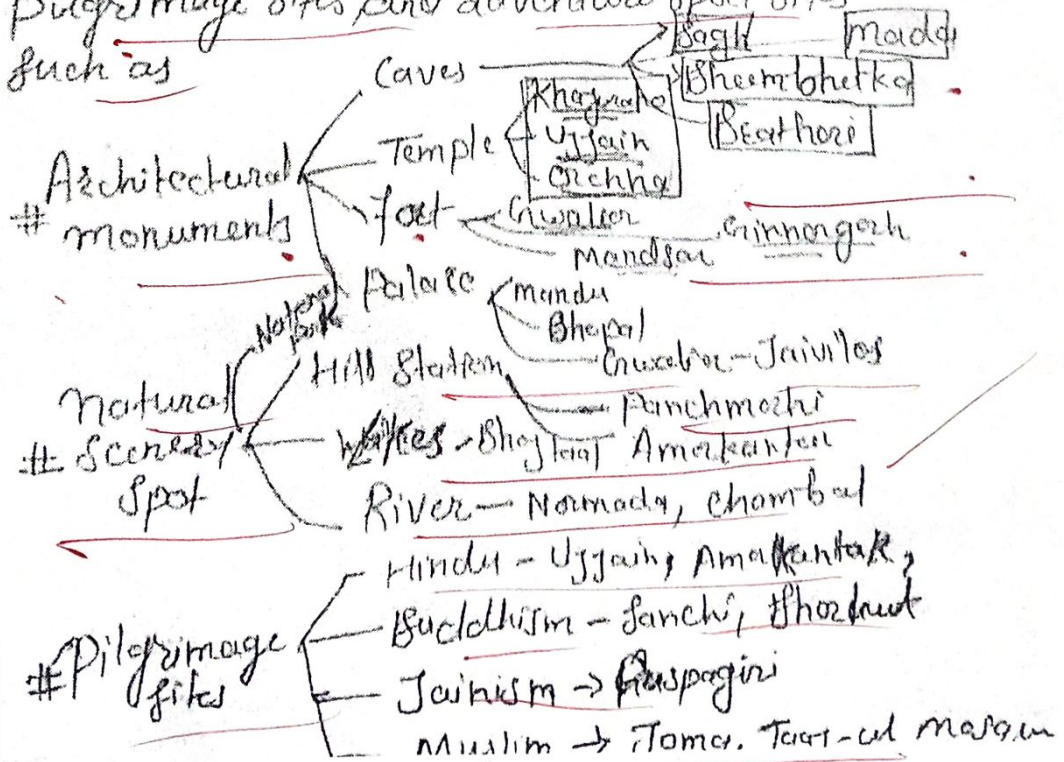 Pilgrimage sites, and adventure sport sites
such as
Caves Bagh Mada
Bheembhetka
Beathori
Architectural
# monuments
Temple Khajuraho
Ujjain
Orchha
fort Gwalior
Mandsar Ginnorgarh
Palace mandu
Bhopal
Gwalior - Jaivilas
Natural
# Scenery
Spot
National
park
Hill Station Panchmarhi
Amarkantak
Lakes - Bhojtaal
River - Narmada, Chambal
# Pilgrimage
sites
Hindu - Ujjain, Amarkantak,
Buddhism - Sanchi, Bharhut
Jainism → Puspagiri
Muslim → Jama. Taat-ul masqu